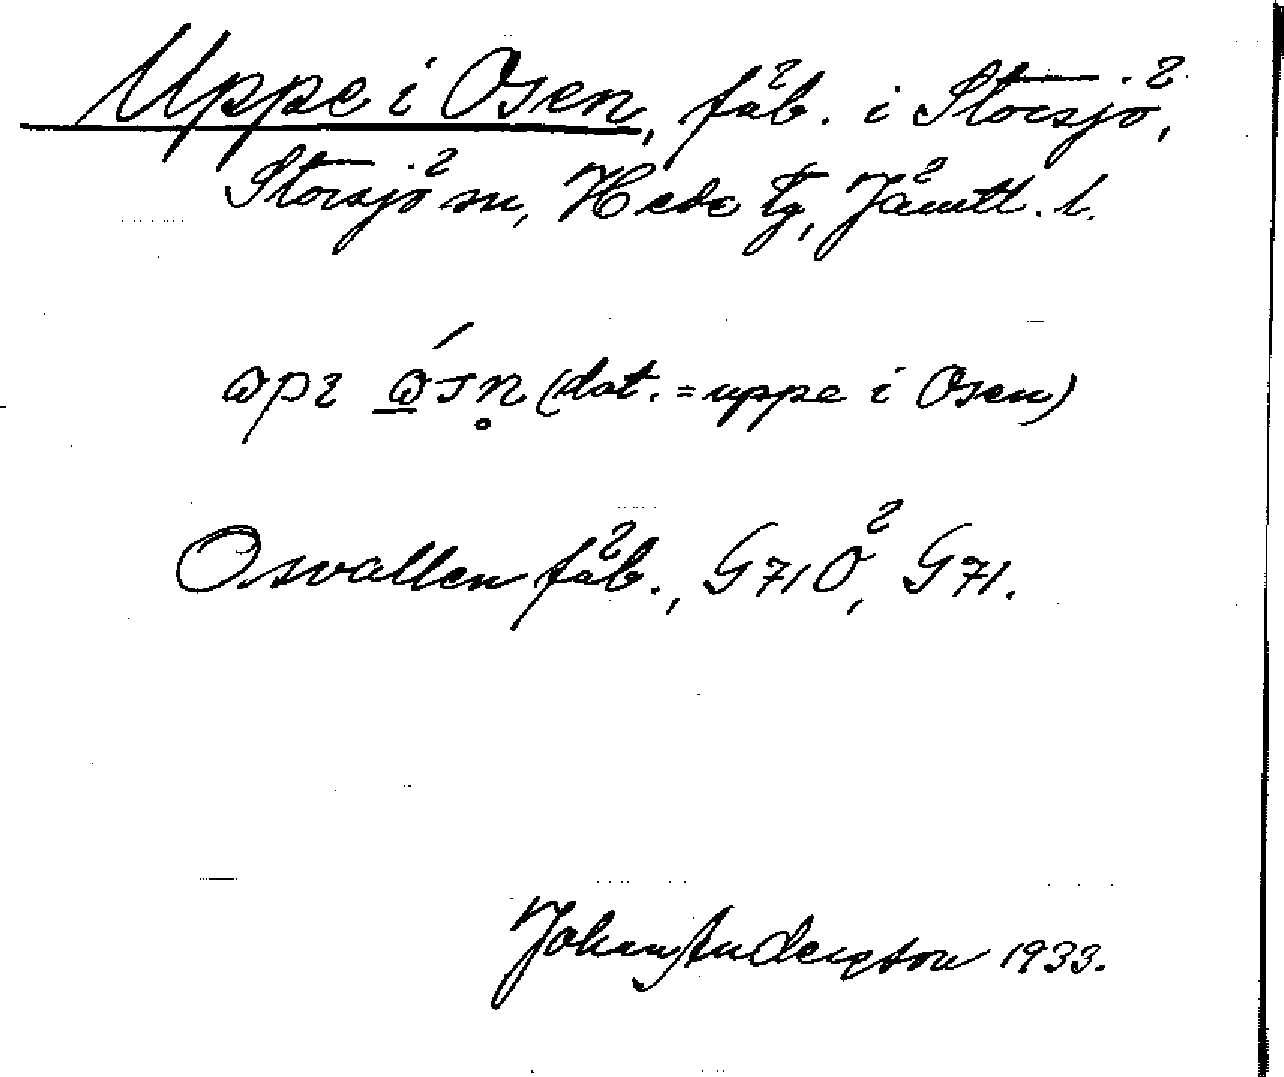 Uppe i Osen, fäb. i Storsjö,
Storsjö sn, Hede tg, Jämtl. l.
(dat. = uppe i Osen)
Osvallen fäb., G71Ö, G71.
Johan Anderson 1933.